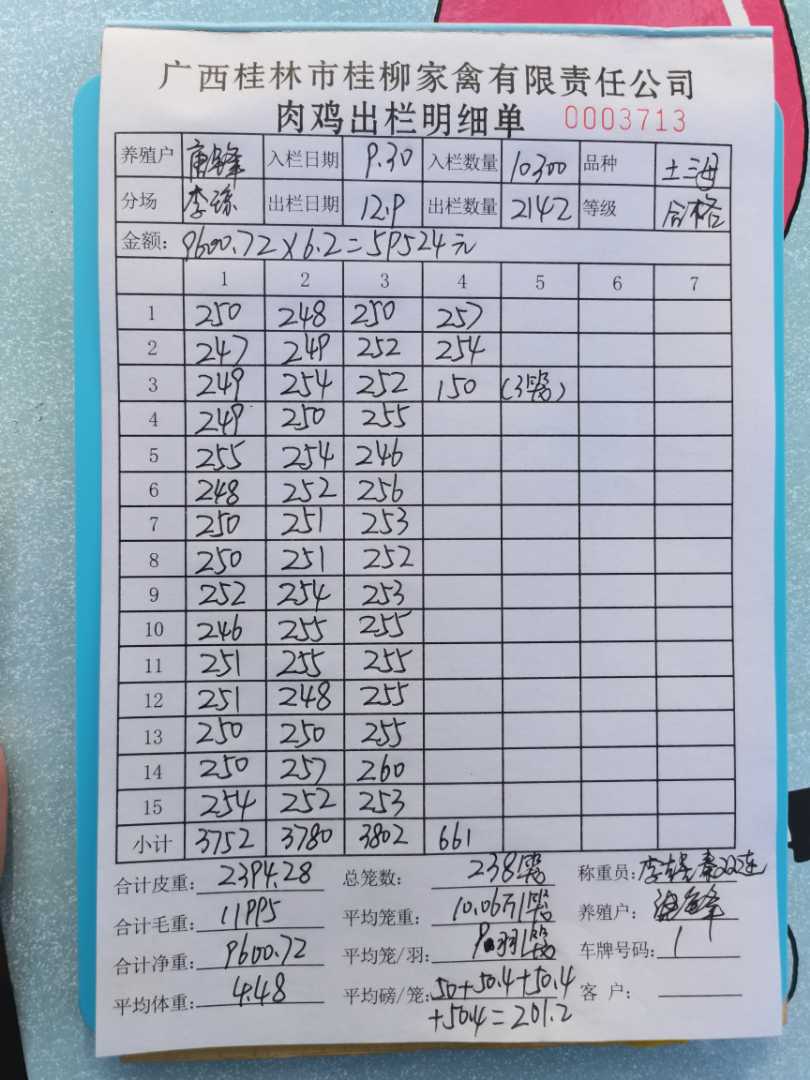 广西桂林市桂柳家禽有限责任公司
肉鸡出栏明细单 0003713
养殖户 唐锋 入栏日期 9.30 入栏数量 10300 品种 土三母
分场 李 出栏日期 12.9 出栏数量 2142 等级 合格
金额: 9600.72×6.2=59524元
1 2 3 4 5 6 7
1 250 248 250 257
2 247 249 252 254
3 249 254 252 150 (3笼)
4 249 250 255
5 255 254 246
6 248 252 256
7 250 251 253
8 250 251 252
9 252 254 253
10 246 255 255
11 251 255 255
12 251 248 255
13 250 250 255
14 250 257 260
15 254 252 253
小计 3752 3780 3802 661
合计皮重: 2394.28 总笼数: 238笼 称重员: 李
合计毛重: 11995 平均笼重: 10.06斤/笼 养殖户: 唐锋
合计净重: 9600.72 平均笼/羽: 9羽/笼 车牌号码: 1
平均体重: 4.48 平均磅/笼: 50+50.4+50.4 客 户:
+50.4=201.2